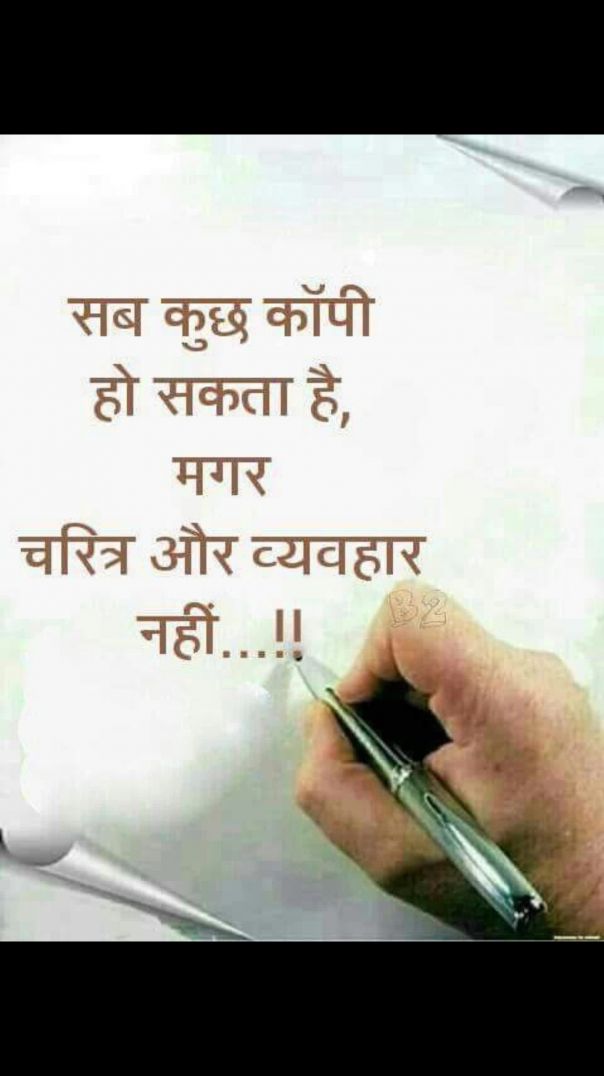 सब कुछ कॉपी
हो सकता है,
मगर
चरित्र और व्यवहार
नहीं...!!
B2